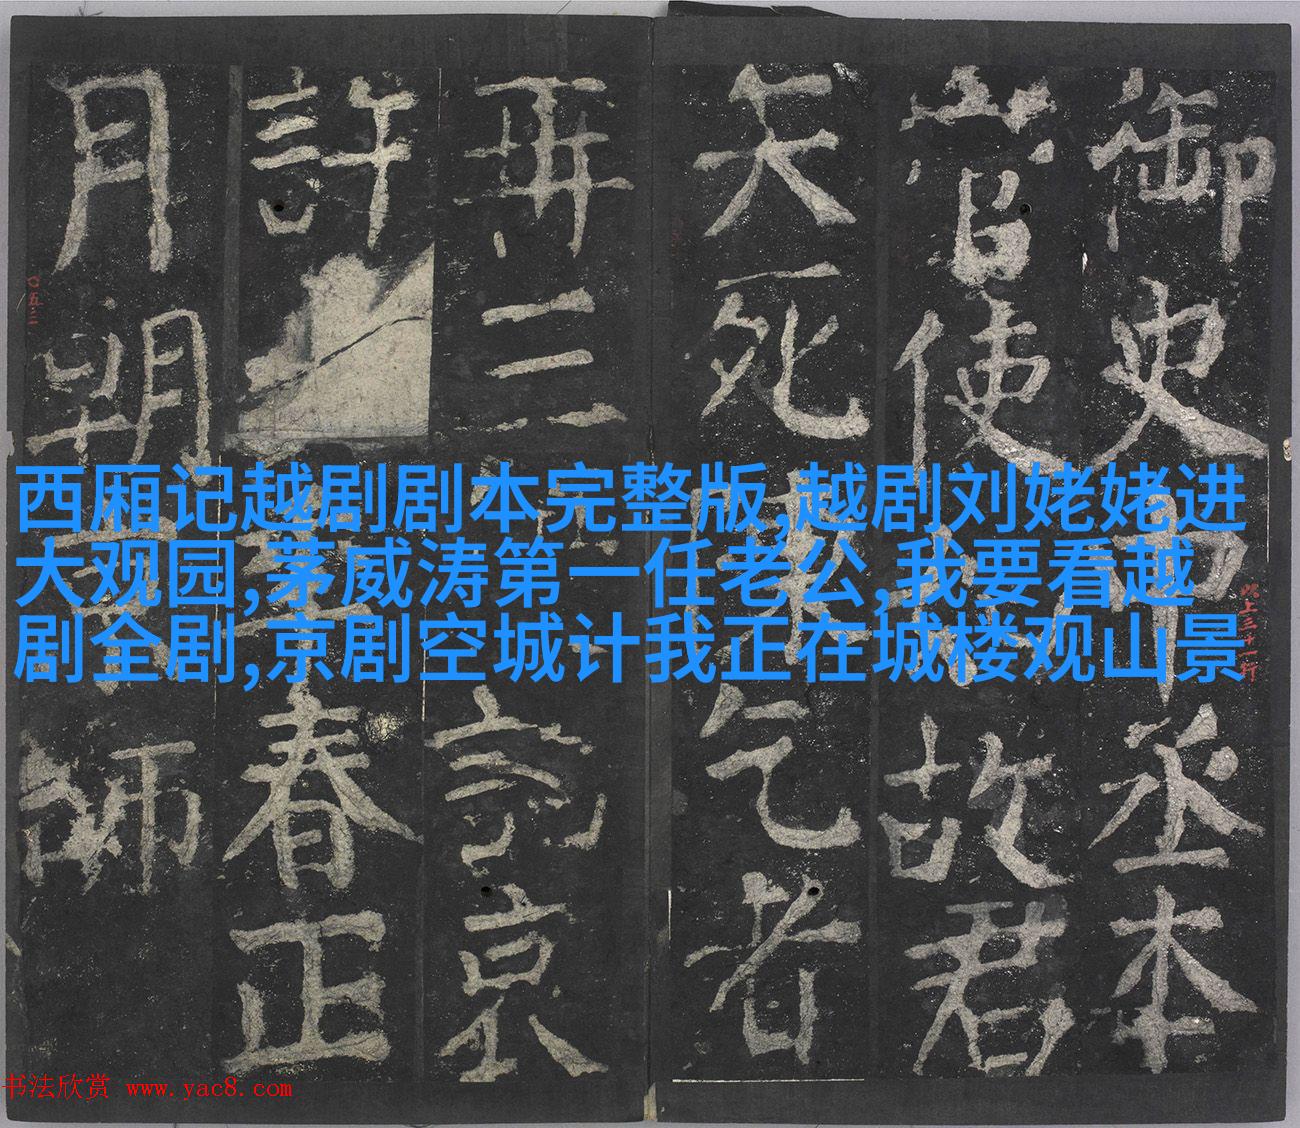 御史中丞本
嘗使故君
死乞者
再三京
許春正
月朔師
西厢记越剧剧本完整版,越剧刘姥姥进
大观园,茅威涛第一任老公,我要看越
剧全剧,京剧空城计我正在城楼观山景
以上三十一行
〇五三
书法欣赏 www.yac8.com